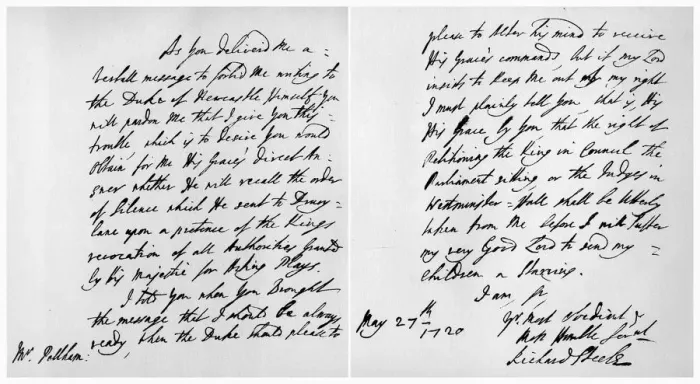 As you deliverd me a =
Verball message to forbid me writing to
the Duke of Newcastle Himself you
will pardon Me that I give you this =
trouble which is to desire you would
Obtain for Me His Grace's direct An =
swer whether He will recall the order
of Silence which He sent to Drury =
lane upon a pretence of the Kings
revocation of all Authorities Granted
by his Majestie for Acting Plays.
I told You when You Brought
the message that I should be always
ready, when the Duke should please to
Mr. Pellham:
please to alter his mind to receive
His Grace's commands, but if my Lord
insists to keep Me out of my right
I must plainly tell you, that is, His
His Grace by you that the right of
Petitioning the King in Council the
Parliament sitting or the Judges in
Westminster = Hall shall be utterly
taken from Me before I will suffer
my very Good Lord to send my =
children a Starving.
I am, Sr
Yr. most obedient &
Most Humble Servnt
Richard Steele
May 27th
1720